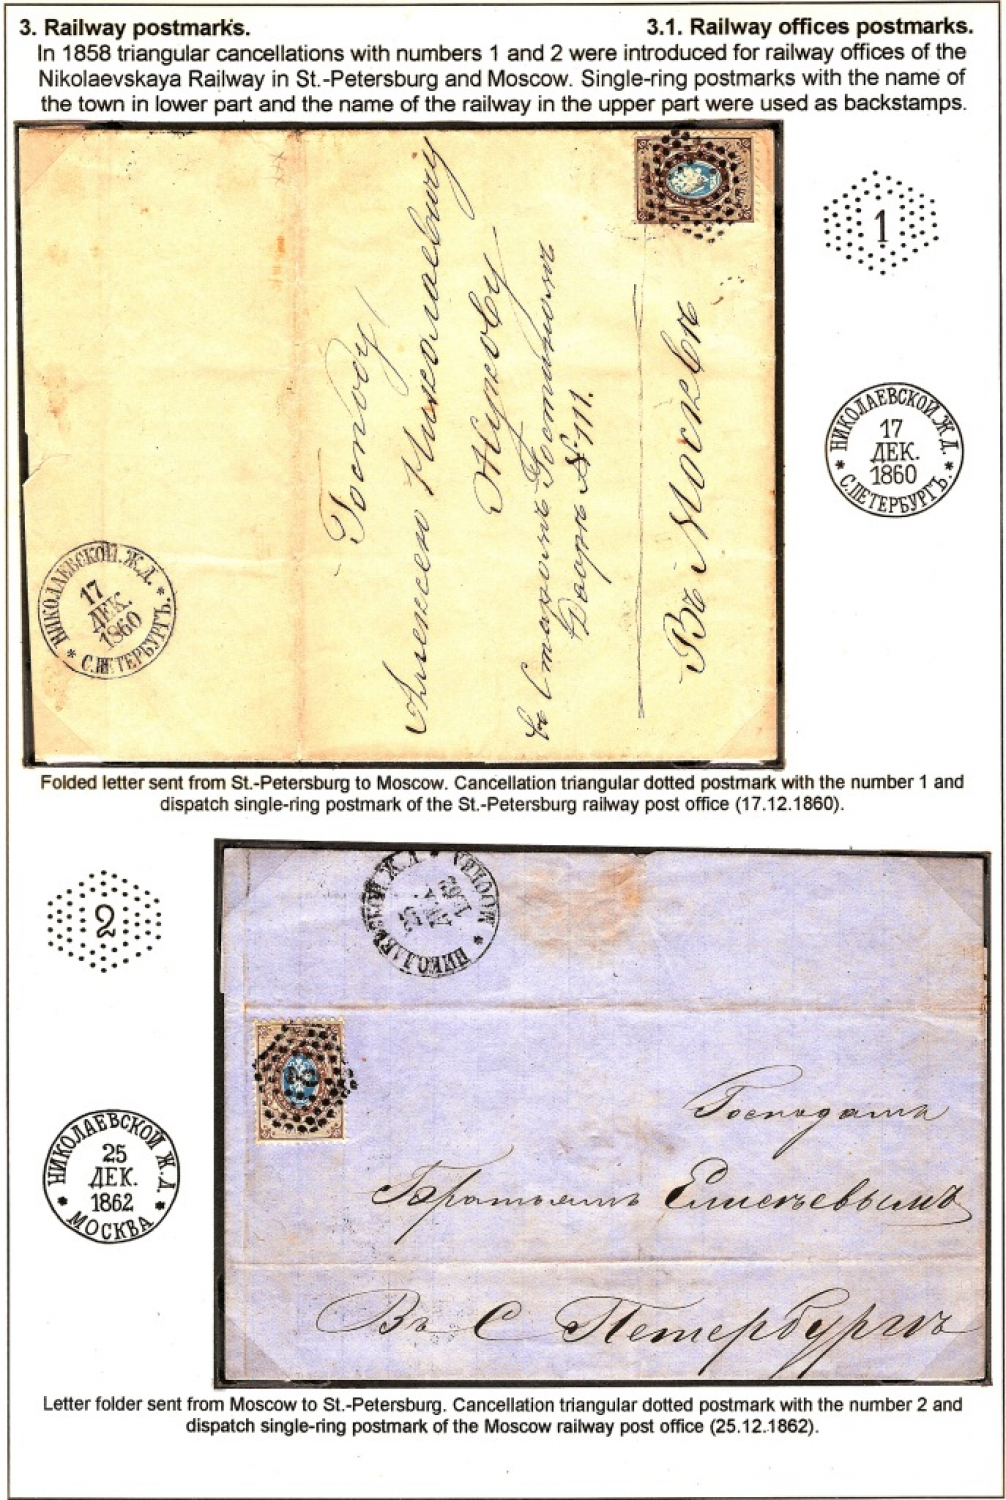 3. Railway postmarks.
3.1. Railway offices postmarks.
In 1858 triangular cancellations with numbers 1 and 2 were introduced for railway offices of the
Nikolaevskaya Railway in St.-Petersburg and Moscow. Single-ring postmarks with the name of
the town in lower part and the name of the railway in the upper part were used as backstamps.
Господу
Алексею Николаевичу
Жукову
въ Старомъ Гостиномъ
Дворѣ №11.
Въ Москвѣ
НИКОЛАЕВСКОЙ Ж.Д.
17
ДЕК.
1860
* С.ПЕТЕРБУРГЪ. *
1
НИКОЛАЕВСКОЙ Ж.Д.
17
ДЕК.
1860
* С.ПЕТЕРБУРГЪ. *
Folded letter sent from St.-Petersburg to Moscow. Cancellation triangular dotted postmark with the number 1 and
dispatch single-ring postmark of the St.-Petersburg railway post office (17.12.1860).
2
НИКОЛАЕВСКОЙ Ж.Д.
25
ДЕК.
1862
* МОСКВА *
НИКОЛАЕВСКОЙ Ж.Д.
25
1862
МОСКВА *
2
Господамъ
Братьямъ Елисѣевымъ
Въ С Петербургъ
Letter folder sent from Moscow to St.-Petersburg. Cancellation triangular dotted postmark with the number 2 and
dispatch single-ring postmark of the Moscow railway post office (25.12.1862).